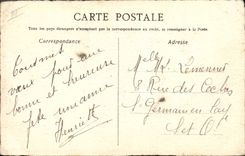 CARTE POSTALE
Tous les pays étrangers n'acceptent pas la correspondance au recto, se renseigner à la Poste.
Correspondance
Adresse
Tous mes
vœux pour une
bonne et heureuse
fête
Henriette
Melle
8 Rue des
St Germain en Laye
S et O